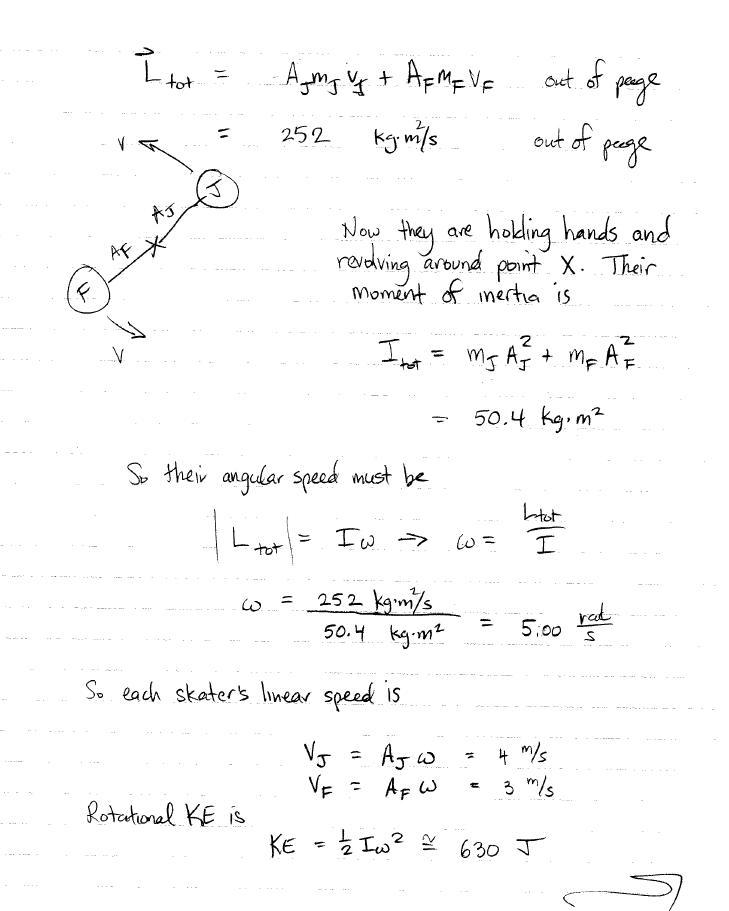 L⃗tot = A_J m_J v_J + A_F m_F v_F out of page
= 252 kg·m²/s out of page
v
J
A_J
A_F
X
F
v
Now they are holding hands and
revolving around point X. Their
moment of inertia is
I_tot = m_J A_J² + m_F A_F²
= 50.4 kg·m²
So their angular speed must be
|L_tot| = Iω → ω = L_tot / I
ω = 252 kg·m²/s / 50.4 kg·m² = 5.00 rad/s
So each skater's linear speed is
V_J = A_J ω = 4 m/s
V_F = A_F ω = 3 m/s
Rotational KE is
KE = ½ Iω² ≅ 630 J